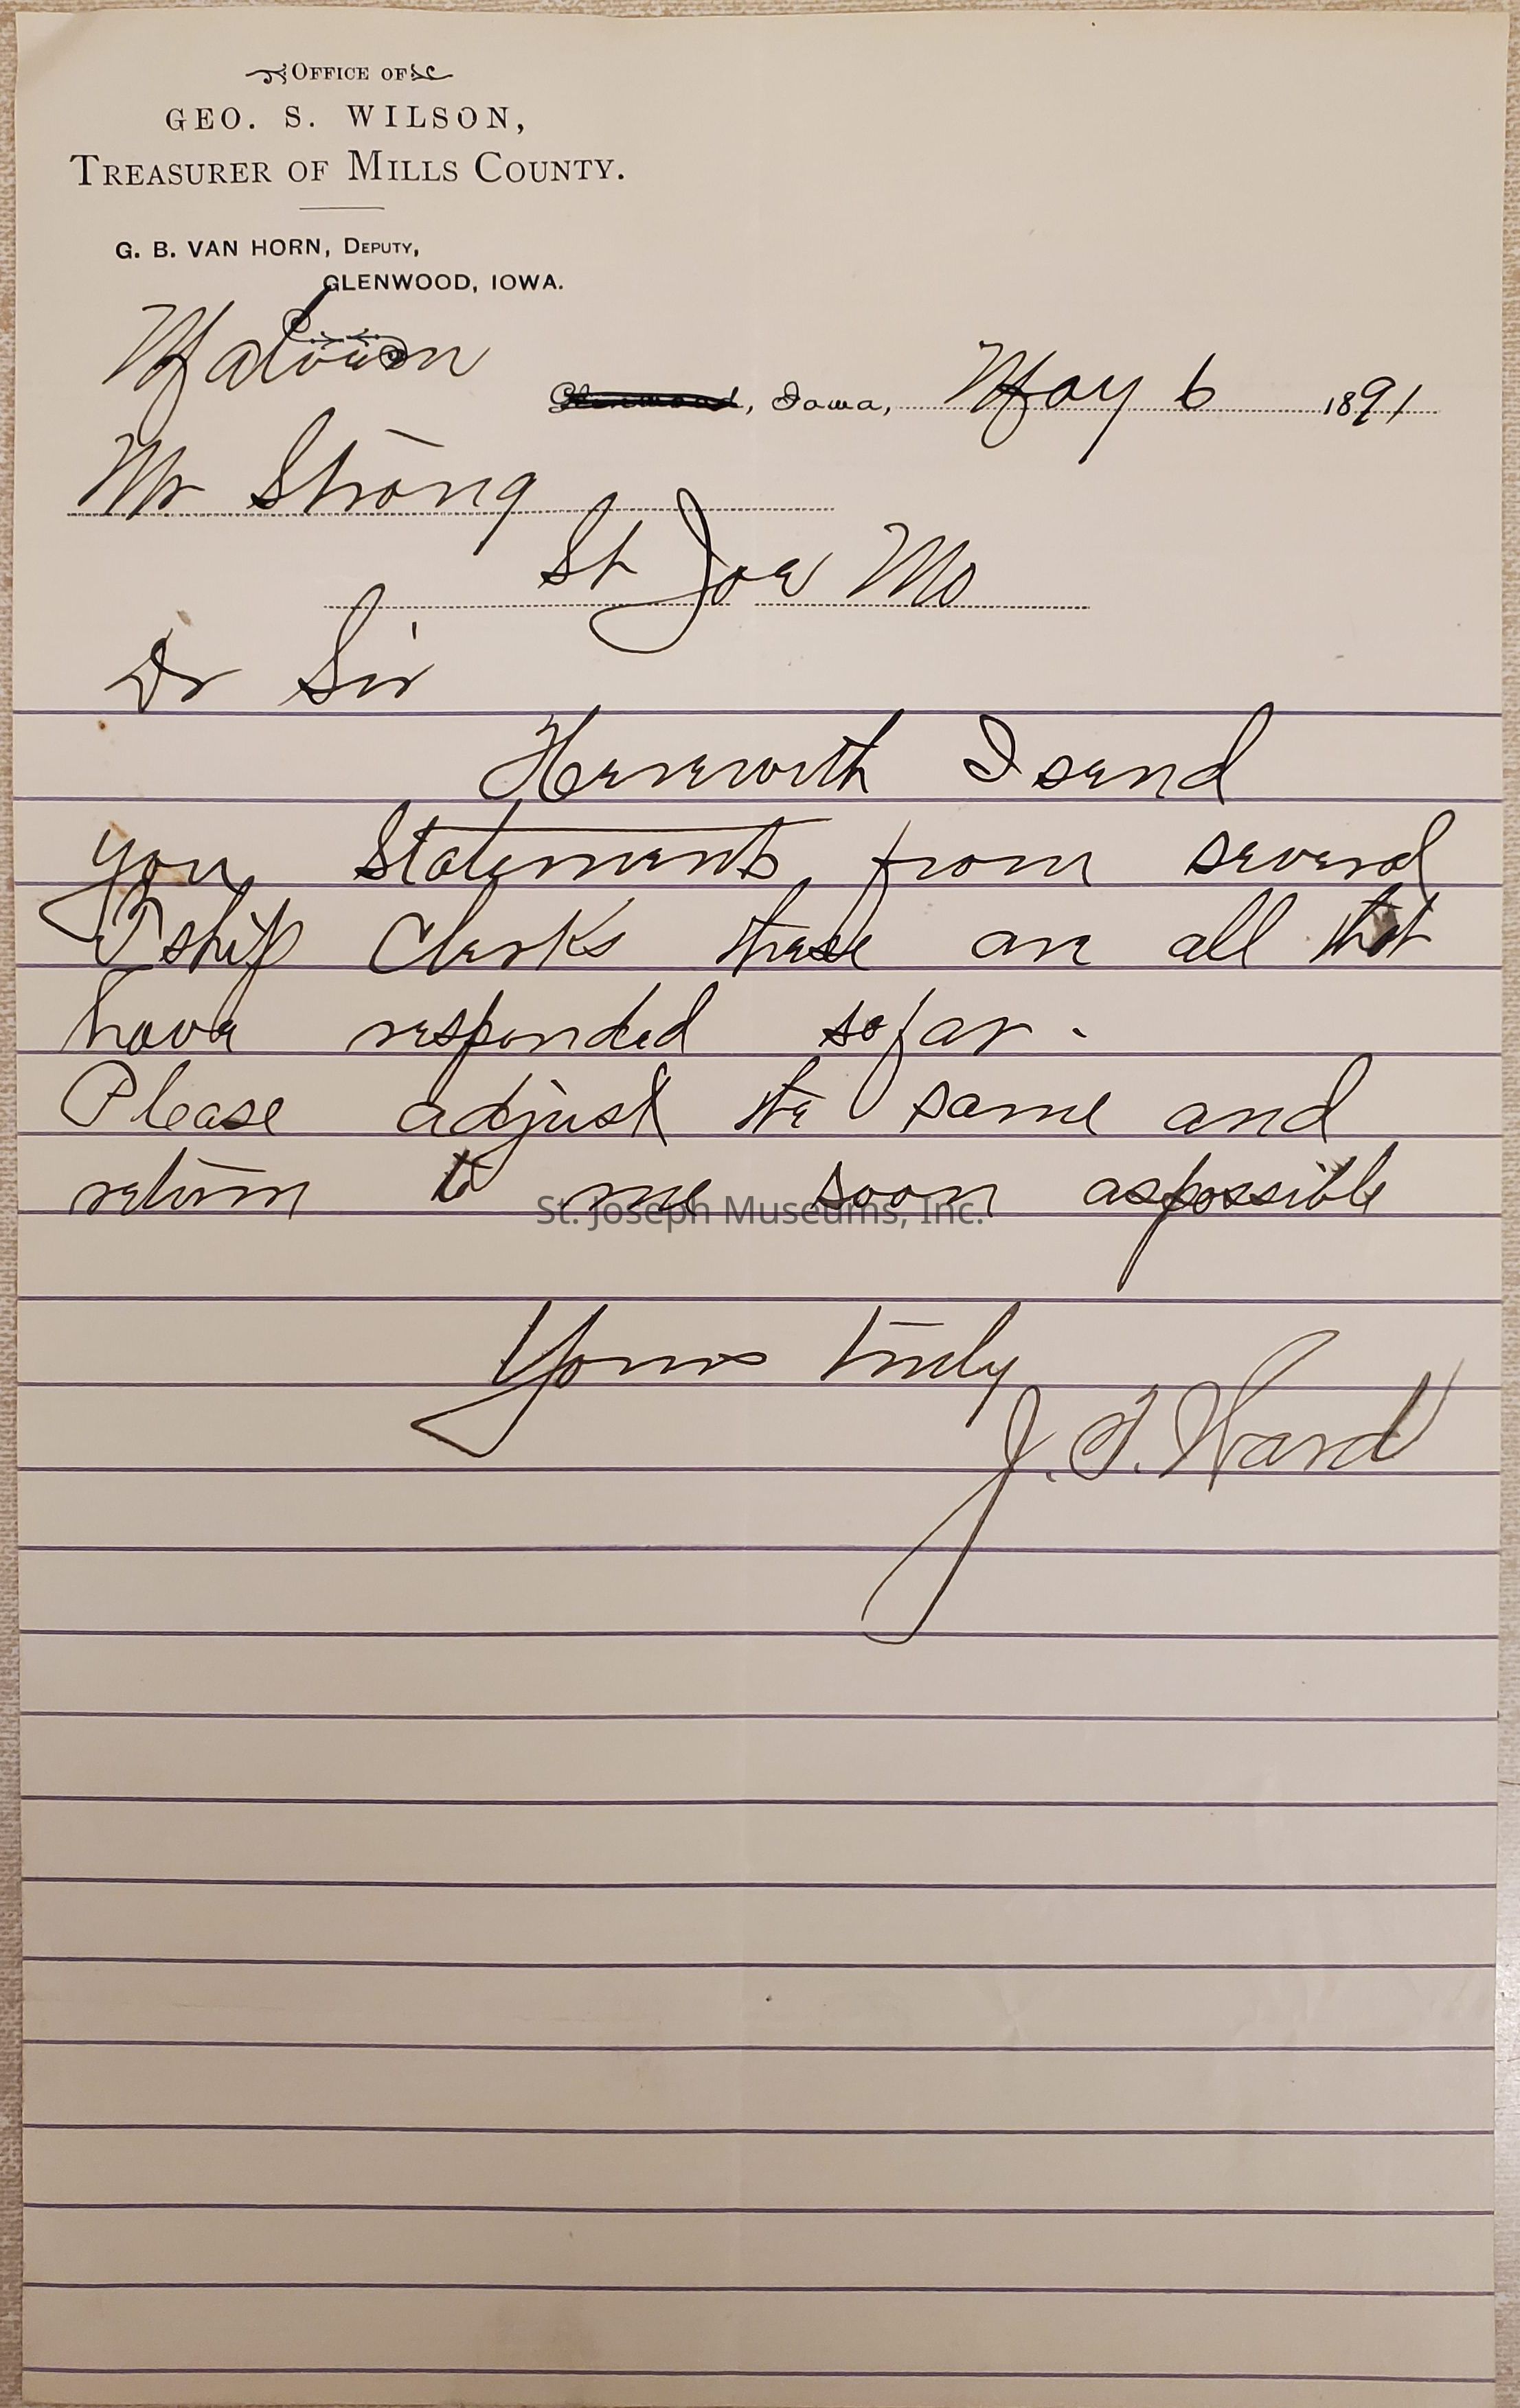 OFFICE OF
GEO. S. WILSON,
TREASURER OF MILLS COUNTY.
G. B. VAN HORN, DEPUTY,
GLENWOOD, IOWA.
Malvern
Glenwood, Iowa, May 6 1891
Mr Strong
St Joe Mo
Dr Sir
Herewith I send
you Statements from several
Tship Clerks these are all that
have responded sofar.
Please adjust the same and
return to me soon aspossible
St. Joseph Museums, Inc.
Yours truly
J. T. Ward